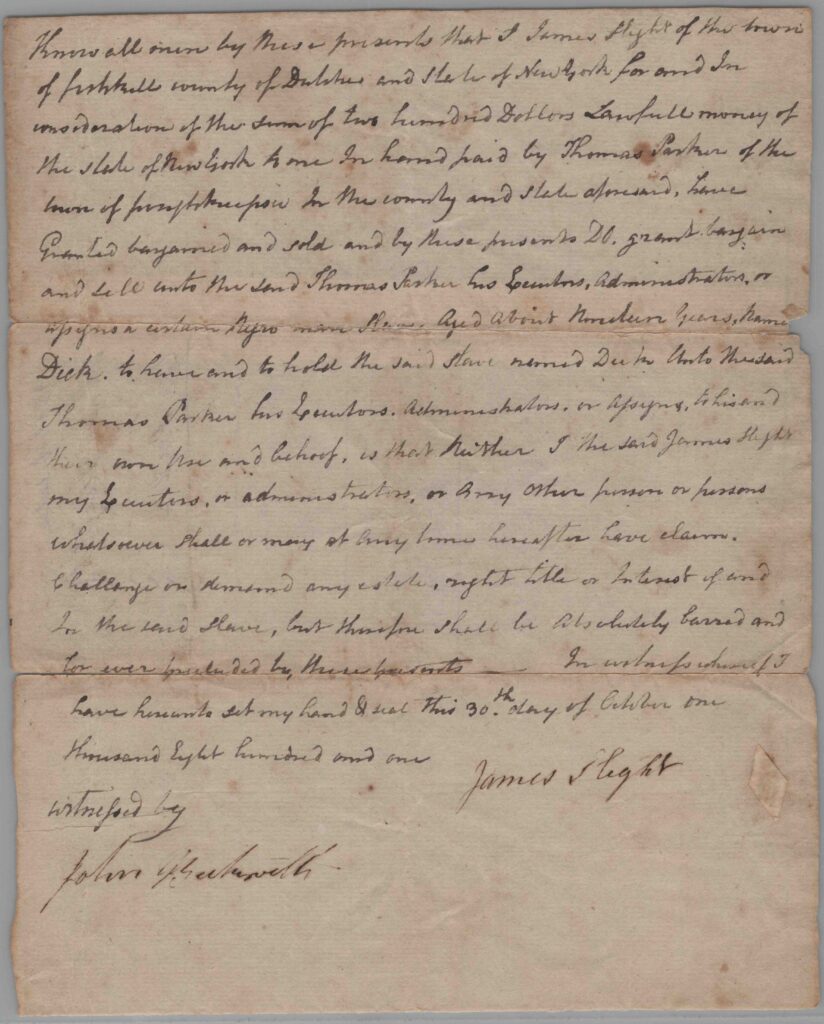 Know all men by these presents that I James Slight of the town
of fishkill county of Dutches and state of New York for and In
consideration of the sum of two hundred Dollors Lawfull money of
the state of New York to me In hand paid by Thomas Parker of the
town of poughkeepsie In the county and state aforesaid, have
Granted bargained and sold and by these presents Do. grant bargain
and sell unto the said Thomas Parker his Executors, Administrators, or
assigns a certain Negro man Slave. Aged About Nineteen Years, Name
Dick. to have and to hold the said slave named Dick Unto the said
Thomas Parker his Executors. Administrators. or Assigns, to his and
their own Use and behoof. so that Neither I the said James Slight
my Executors, or administrators, or Any Other person or persons
whatsoever shall or may at Any time hereafter have claim.
Challange or demand any estate, right title or Interest of and
In the said slave, but therefore shall be Absolutely barred and
for ever precluded by, these presents — In witness whereof I
have hereunto set my hand & seal this 30.th day of October one
thousand Eight hundred and one
James Slight
witnessed by
John